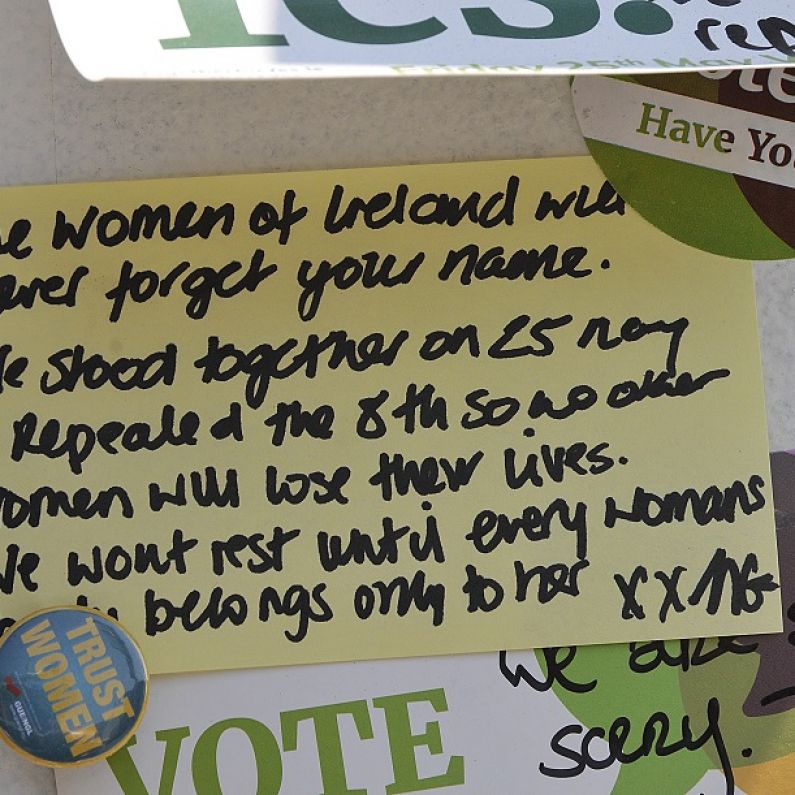 YES.
rep
Friday 25th May
Have Yo
women of Ireland will
forget your name.
stood together on 25 may
Repealed the 8th so no other
women will lose their lives.
We wont rest until every womans
belongs only to her xx NG
TRUST
WOMEN
GUE/NGL
VOTE
We are
sorry.